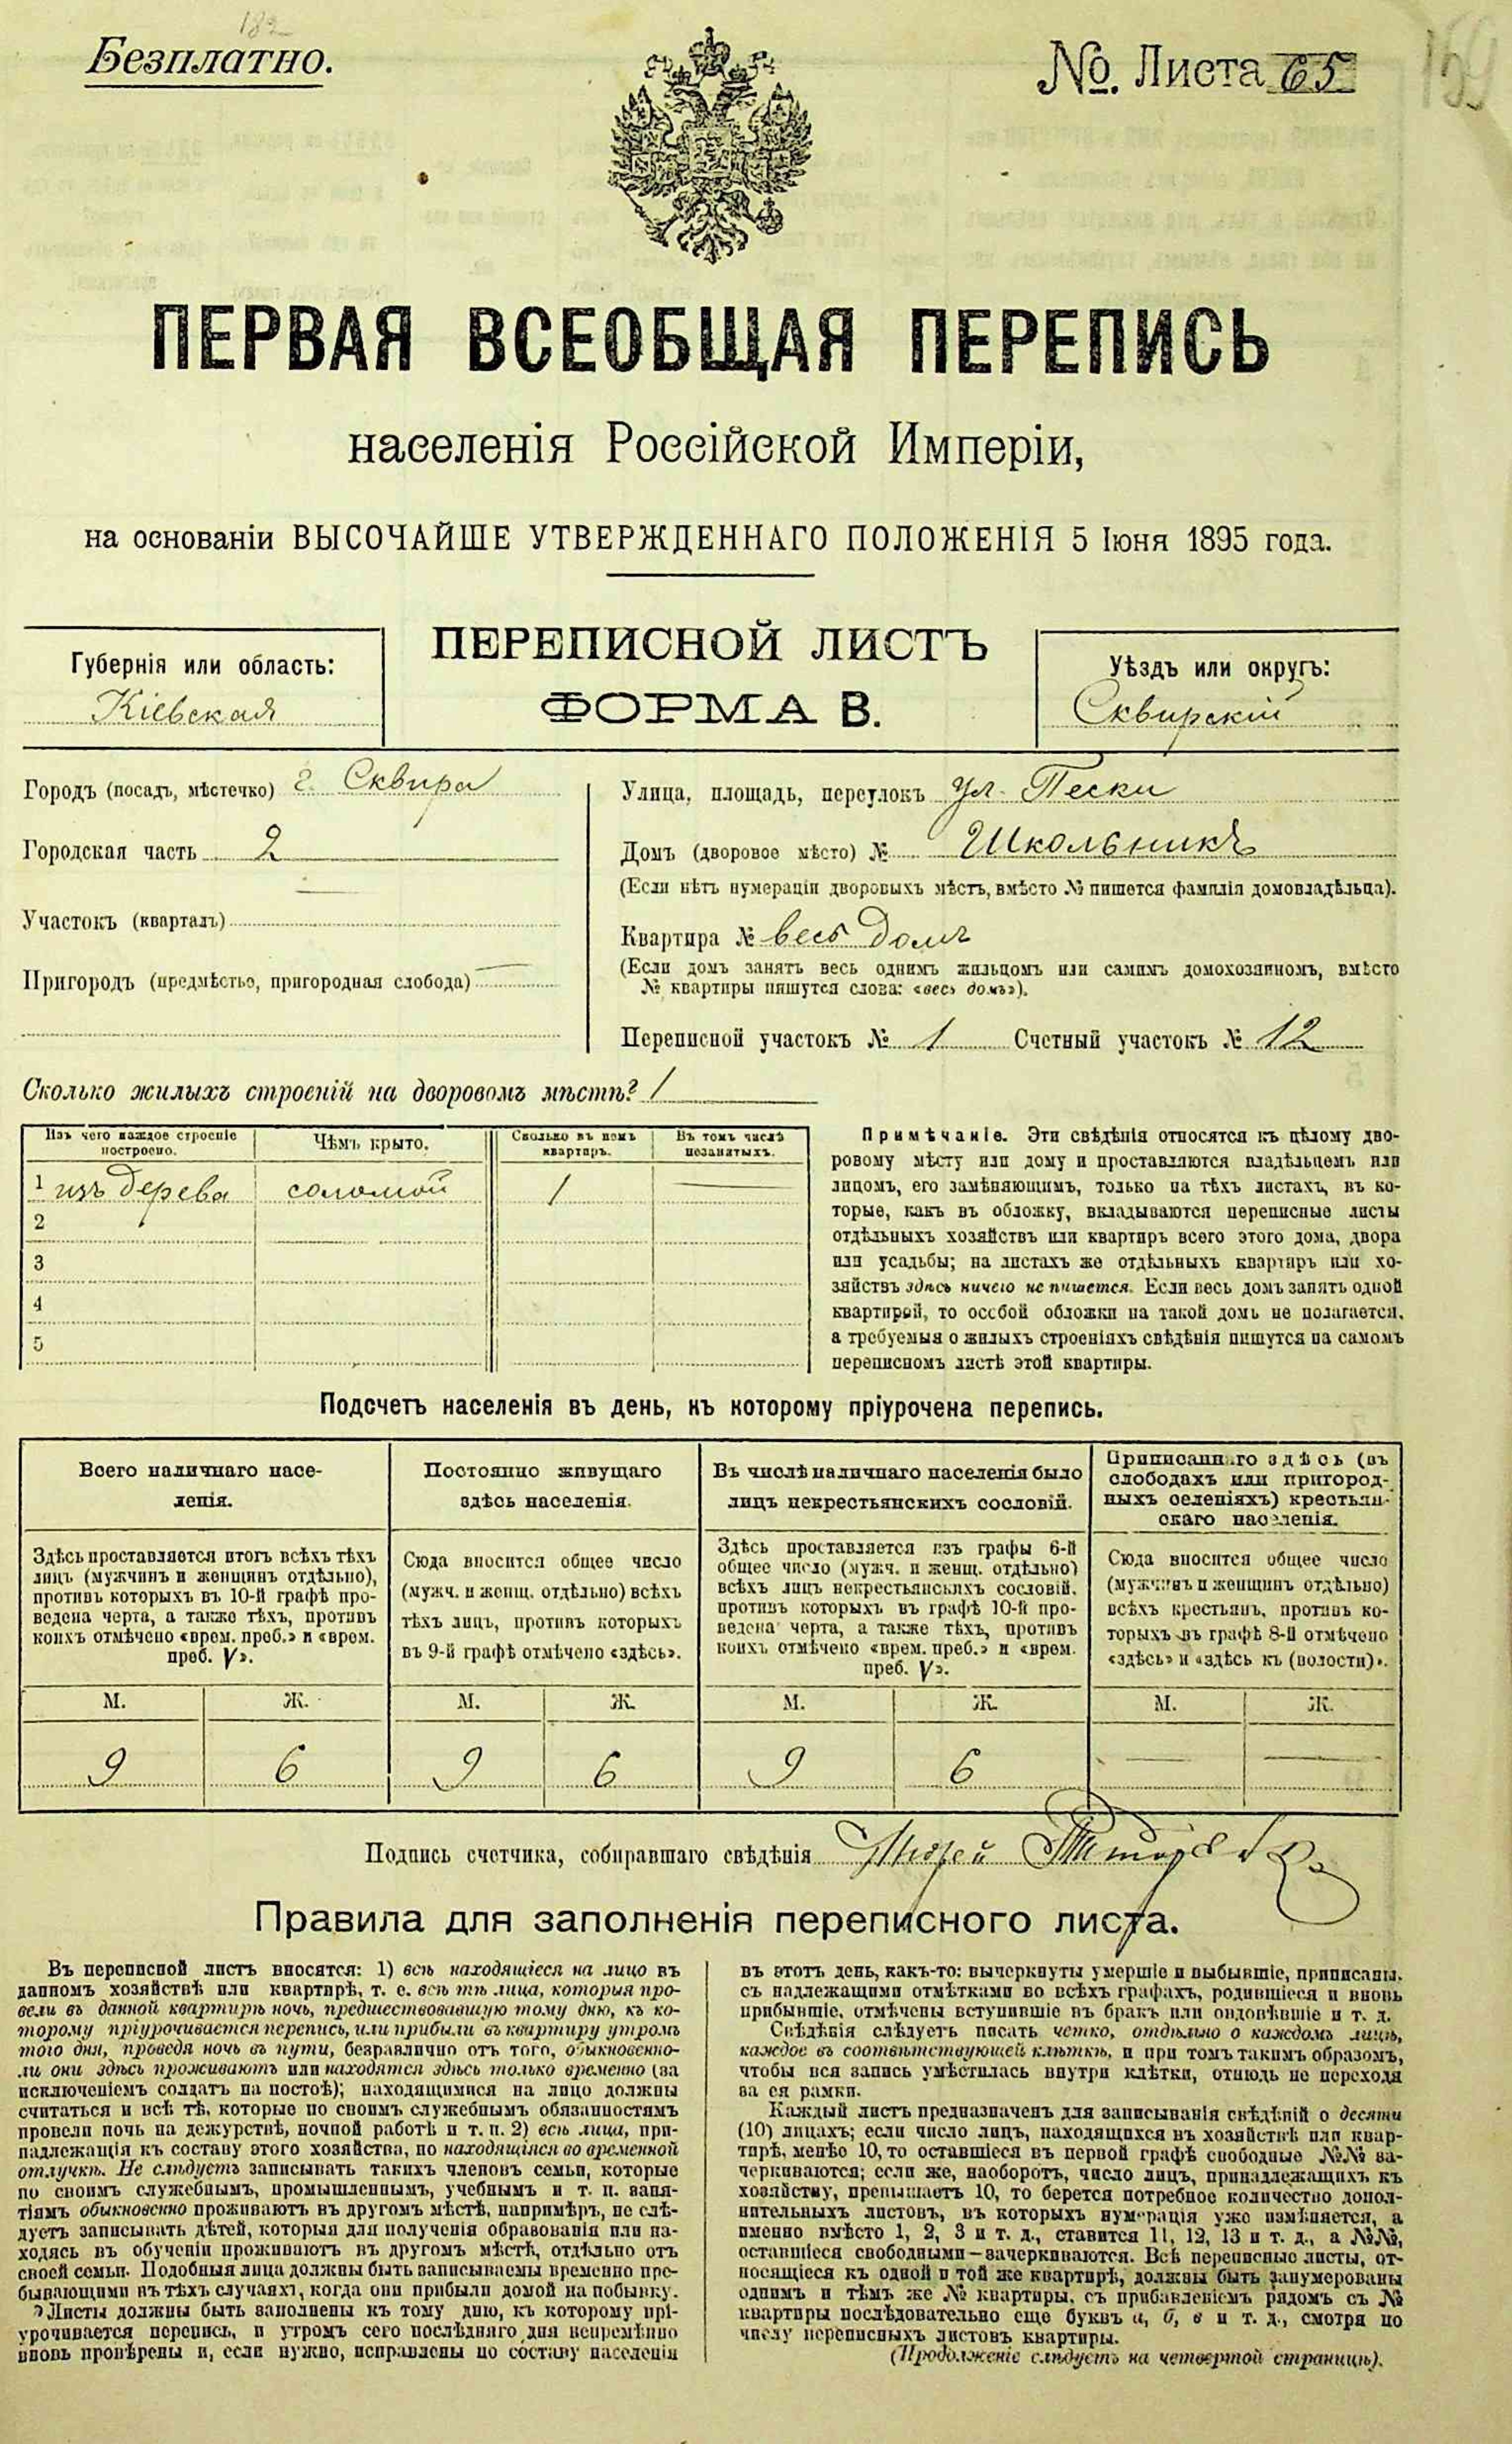 182
Безплатно.
№. Листа 65
159
ПЕРВАЯ ВСЕОБЩАЯ ПЕРЕПИСЬ
населенія Россійской Имперіи,
на основаніи ВЫСОЧАЙШЕ УТВЕРЖДЕННАГО ПОЛОЖЕНІЯ 5 Іюня 1895 года.
Губернія или область:
Кіевская
ПЕРЕПИСНОЙ ЛИСТЪ
ФОРМА В.
Уѣздъ или округъ:
Сквирскій
Городъ (посадъ, мѣстечко) г. Сквира
Городская часть 2
Участокъ (кварталъ)
Пригородъ (предмѣстье, пригородная слобода)
Улица, площадь, переулокъ ул. Пески
Домъ (дворовое мѣсто) № Школьникъ
(Если нѣтъ нумераціи дворовыхъ мѣстъ, вмѣсто № пишется фамилія домовладѣльца).
Квартира № весь домъ
(Если домъ занятъ весь однимъ жильцомъ или самимъ домохозяиномъ, вмѣсто
№ квартиры пишутся слова: «весь домъ»).
Переписной участокъ № 1 Счетный участокъ № 12
Сколько жилыхъ строеній на дворовомъ мѣстѣ? 1
Изъ чего каждое строеніе
построено.
Чѣмъ крыто.
Сколько въ немъ
квартиръ.
Въ томъ числѣ
незанятыхъ.
1 изъ дерева соломой 1
2
3
4
5
Примѣчаніе. Эти свѣдѣнія относятся къ цѣлому дво-
ровому мѣсту или дому и проставляются владѣльцемъ или
лицомъ, его замѣняющимъ, только на тѣхъ листахъ, въ ко-
торые, какъ въ обложку, вкладываются переписные листы
отдѣльныхъ хозяйствъ или квартиръ всего этого дома, двора
или усадьбы; на листахъ же отдѣльныхъ квартиръ или хо-
зяйствъ здѣсь ничего не пишется. Если весь домъ занятъ одной
квартирой, то особой обложки на такой домъ не полагается,
а требуемыя о жилыхъ строеніяхъ свѣдѣнія пишутся на самомъ
переписномъ листѣ этой квартиры.
Подсчетъ населенія въ день, къ которому пріурочена перепись.
Всего наличнаго насе-
ленія.
Здѣсь проставляется итогъ всѣхъ тѣхъ
лицъ (мужчинъ и женщинъ отдѣльно),
противъ которыхъ въ 10-й графѣ про-
ведена черта, а также тѣхъ, противъ
коихъ отмѣчено «врем. преб.» и «врем.
преб. V».
Постоянно живущаго
здѣсь населенія.
Сюда вносится общее число
(мужч. и женщ. отдѣльно) всѣхъ
тѣхъ лицъ, противъ которыхъ
въ 9-й графѣ отмѣчено «здѣсь».
Въ числѣ наличнаго населенія было
лицъ некрестьянскихъ сословій.
Здѣсь проставляется изъ графы 6-й
общее число (мужч. и женщ. отдѣльно)
всѣхъ лицъ некрестьянскихъ сословій,
противъ которыхъ въ графѣ 10-й про-
ведена черта, а также тѣхъ, противъ
коихъ отмѣчено «врем. преб.» и «врем.
преб. V».
Приписаннаго здѣсь (въ
слободахъ или пригород-
ныхъ селеніяхъ) крестьян-
скаго населенія.
Сюда вносится общее число
(мужчинъ и женщинъ отдѣльно)
всѣхъ крестьянъ, противъ ко-
торыхъ въ графѣ 8-й отмѣчено
«здѣсь» и «здѣсь къ (волости)».
М. Ж. М. Ж. М. Ж. М. Ж.
9 6 9 6 9 6
Подпись счетчика, собиравшаго свѣдѣнія
Правила для заполненія переписного листа.
Въ переписной листъ вносятся: 1) всѣ находящіеся на лицо въ
данномъ хозяйствѣ или квартирѣ, т. е. всѣ тѣ лица, которыя про-
вели въ данной квартирѣ ночь, предшествовавшую тому дню, къ ко-
торому пріурочивается перепись, или прибыли въ квартиру утромъ
того дня, проведя ночь въ пути, безразлично отъ того, обыкновенно-
ли они здѣсь проживаютъ или находятся здѣсь только временно (за
исключеніемъ солдатъ на постоѣ); находящимися на лицо должны
считаться и всѣ тѣ, которые по своимъ служебнымъ обязанностямъ
провели ночь на дежурствѣ, ночной работѣ и т. п. 2) всѣ лица, при-
надлежащія къ составу этого хозяйства, но находящіяся во временной
отлучкѣ. Не слѣдуетъ записывать такихъ членовъ семьи, которые
по своимъ служебнымъ, промышленнымъ, учебнымъ и т. п. заня-
тіямъ обыкновенно проживаютъ въ другомъ мѣстѣ, напримѣръ, не слѣ-
дуетъ записывать дѣтей, которыя для полученія образованія или на-
ходясь въ обученіи проживаютъ въ другомъ мѣстѣ, отдѣльно отъ
своей семьи. Подобныя лица должны быть записываемы временно пре-
бывающими въ тѣхъ случаяхъ, когда они прибыли домой на побывку.
Листы должны быть заполнены къ тому дню, къ которому прі-
урочивается перепись, и утромъ сего послѣдняго дня непремѣнно
вновь провѣрены и, если нужно, исправлены по составу населенія
въ этотъ день, какъ-то: вычеркнуты умершіе и выбывшіе, приписаны,
съ надлежащими отмѣтками во всѣхъ графахъ, родившіеся и вновь
прибывшіе, отмѣчены вступившіе въ бракъ или овдовѣвшіе и т. д.
Свѣдѣнія слѣдуетъ писать четко, отдѣльно о каждомъ лицѣ,
каждое въ соотвѣтствующей клѣткѣ, и при томъ такимъ образомъ,
чтобы вся запись умѣстилась внутри клѣтки, отнюдь не переходя
за ея рамки.
Каждый листъ предназначенъ для записыванія свѣдѣній о десяти
(10) лицахъ; если число лицъ, находящихся въ хозяйствѣ или квар-
тирѣ, менѣе 10, то оставшіеся въ первой графѣ свободные №№ за-
черкиваются; если же, наоборотъ, число лицъ, принадлежащихъ къ
хозяйству, превышаетъ 10, то берется потребное количество допол-
нительныхъ листовъ, въ которыхъ нумерація уже измѣняется, а
именно вмѣсто 1, 2, 3 и т. д., ставится 11, 12, 13 и т. д., а №№,
оставшіеся свободными—зачеркиваются. Всѣ переписные листы, от-
носящіеся къ одной и той же квартирѣ, должны быть занумерованы
однимъ и тѣмъ же № квартиры, съ прибавленіемъ рядомъ съ №
квартиры послѣдовательно еще буквъ а, б, в и т. д., смотря по
числу переписныхъ листовъ квартиры.
(Продолженіе слѣдуетъ на четвертой страницѣ).